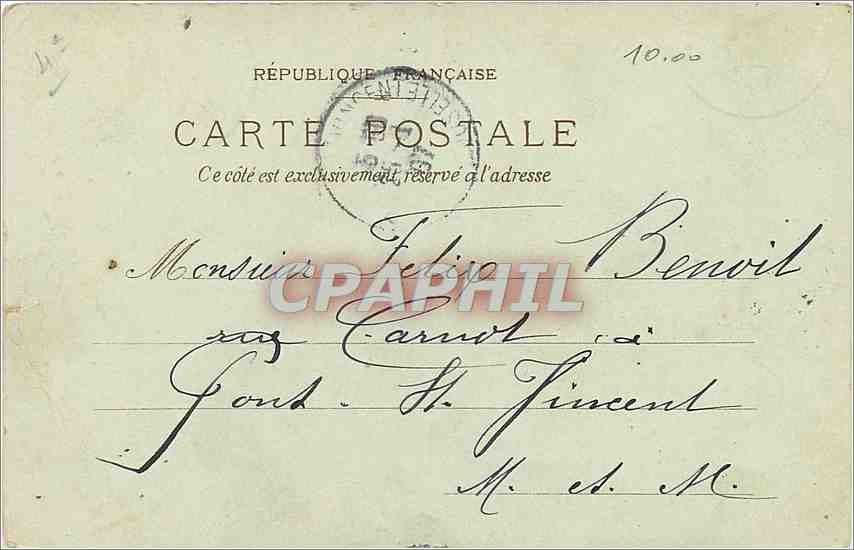 4e
10.00
RÉPUBLIQUE FRANÇAISE
CARTE POSTALE
Ce côté est exclusivement réservé à l'adresse
Monsieur Felix Benoit
CPAPHIL
rue Carnot à
Pont-St. Vincent
M. et. M.